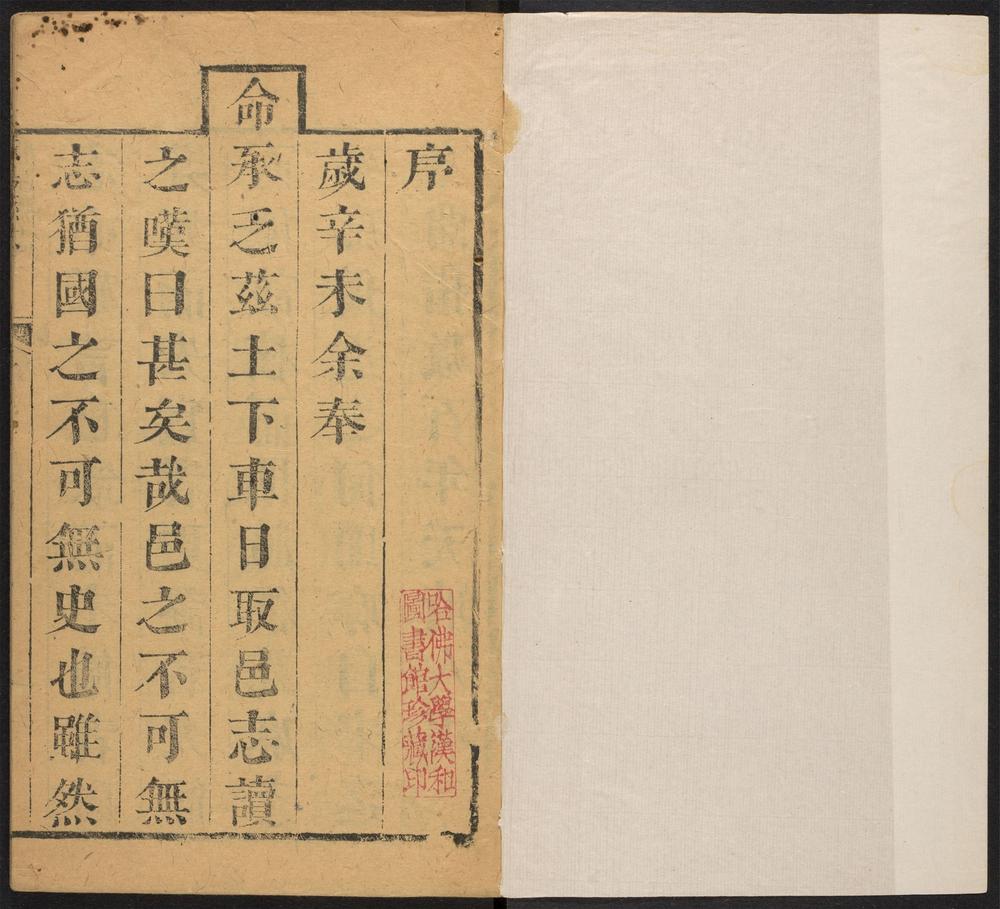 序
歲辛未余奉
命承乏茲土下車日取邑志讀
之嘆曰甚矣哉邑之不可無
志猶國之不可無史也雖然
哈佛大學漢和
圖書館珍藏印